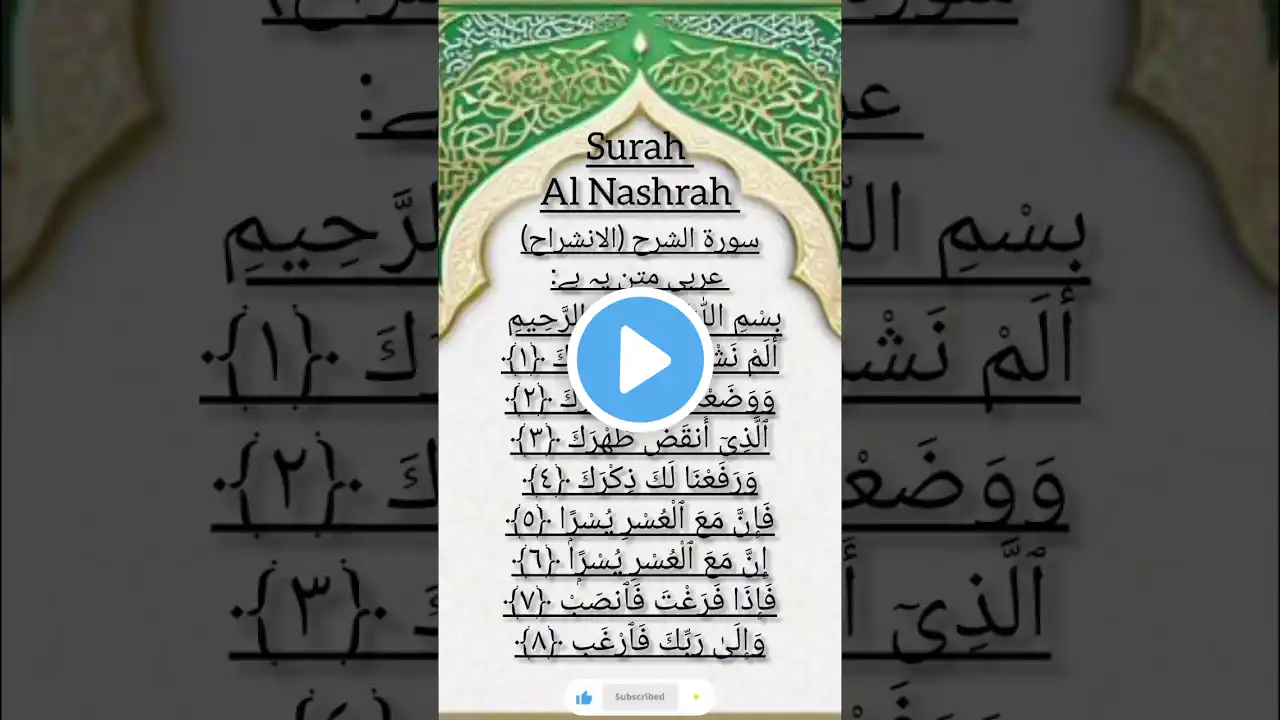 Surah
Al Nashrah
سورة الشرح (الانشراح)
عربی متن یہ ہے:
بِسْمِ الرَّحِيمِ
أَلَمْ ﴿١﴾
﴿٢﴾
ٱلَّذِىٓ أَنقَضَ ظَهْرَكَ ﴿٣﴾
وَرَفَعْنَا لَكَ ذِكْرَكَ ﴿٤﴾
فَإِنَّ مَعَ ٱلْعُسْرِ يُسْرًا ﴿٥﴾
إِنَّ مَعَ ٱلْعُسْرِ يُسْرًۭا ﴿٦﴾
فَإِذَا فَرَغْتَ فَٱنصَبْ ﴿٧﴾
وَإِلَىٰ رَبِّكَ فَٱرْغَب ﴿٨﴾
Subscribed